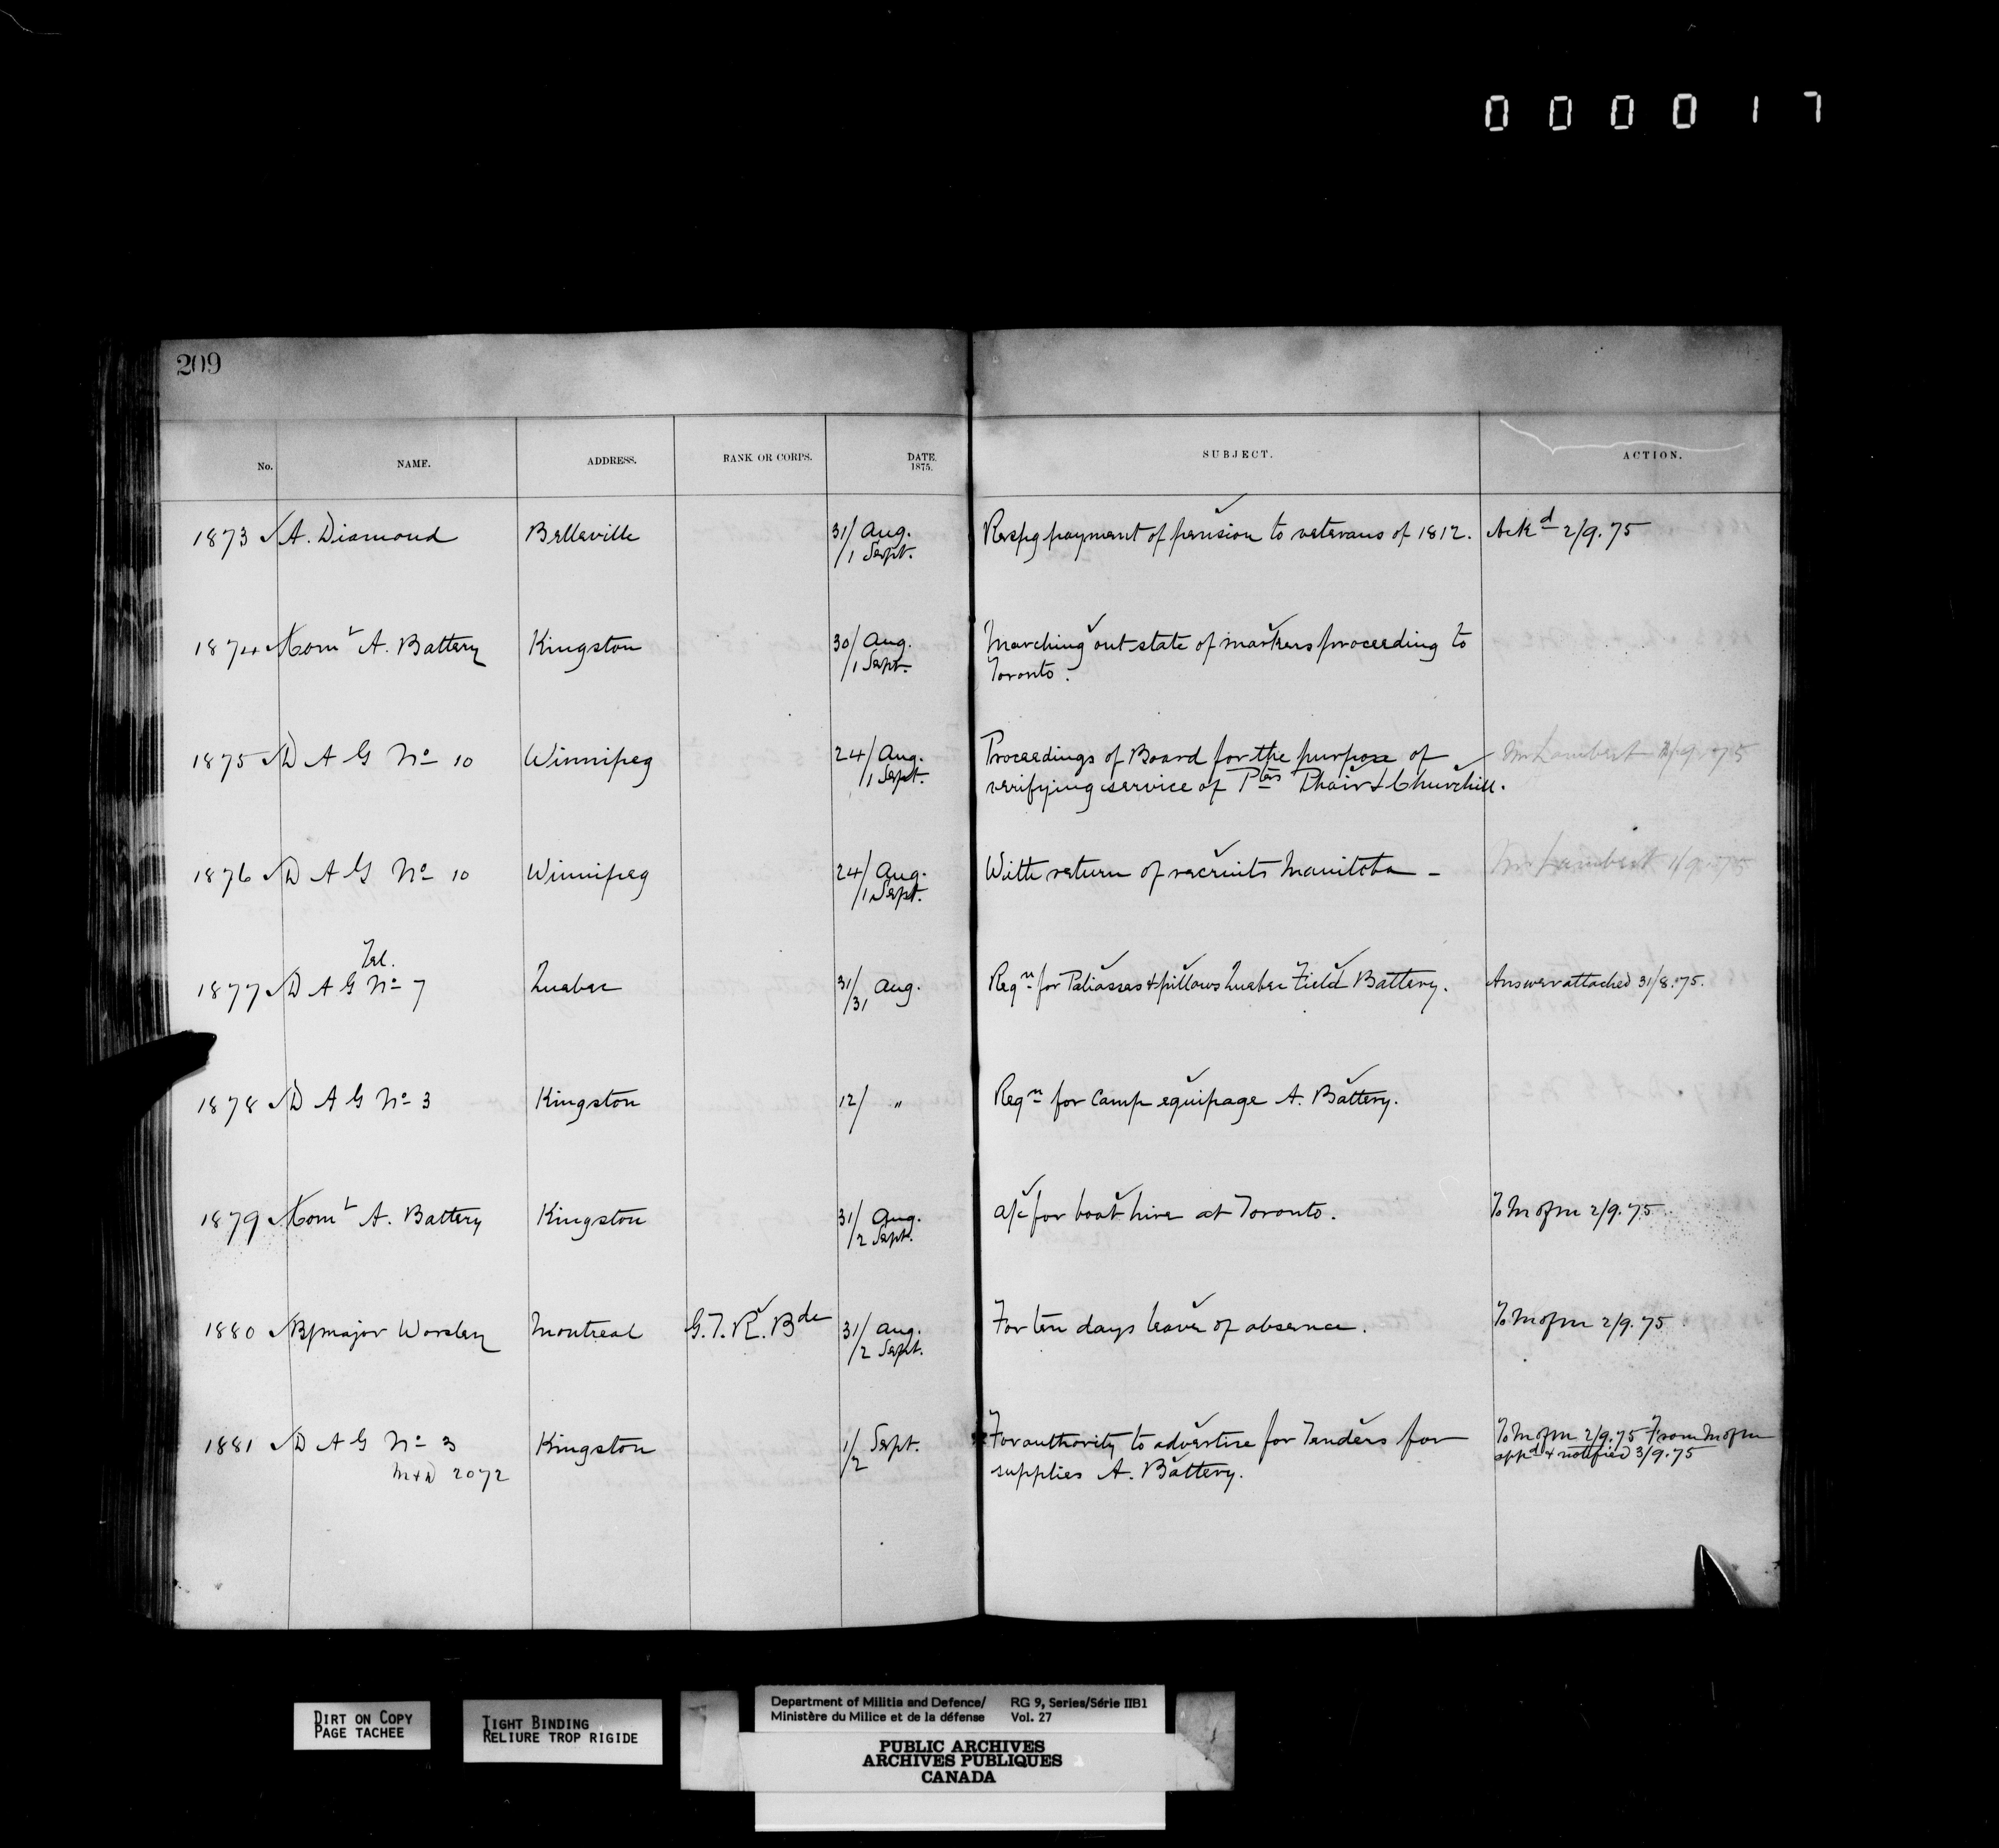 000017
209
No. NAME. ADDRESS. RANK OR CORPS. DATE. 1875. SUBJECT. ACTION.
1873 A. Diamond Belleville 31/ Aug. Respg payment of pension to veterans of 1812. Ackd 2/9.75
/1 Sept.
1874 Comt A. Battery Kingston 30/ Aug. Marching out state of markers proceeding to
/1 Sept. Toronto.
1875 D A G No 10 Winnipeg 24/ Aug. Proceedings of Board for the purpose of Mr Lambert 2/9.75
/1 Sept. verifying service of Ptes Phair & Churchill.
1876 D A G No 10 Winnipeg 24/ Aug. With return of recruits Manitoba - Mr Lambert 1/9.75
/1 Sept.
Tel.
1877 D A G No 7 Quebec 31/31 Aug. Reqn for Paliasses & pillows Quebec Field Battery. Answer attached 31/8.75.
1878 D A G No 3 Kingston 12/ " Reqn for Camp equipage A. Battery.
1879 Comt A. Battery Kingston 31/ Aug. a/c for boat hire at Toronto. To M of M 2/9.75
/2 Sept.
1880 Bt Major Worsley Montreal G.T.R. Bde 31/ Aug. For ten days leave of absence. To M of M 2/9.75
/2 Sept.
1881 D A G No 3 Kingston 1/2 Sept. For authority to advertise for Tenders for To M of M 2/9.75 From M of M
M & D 2072 supplies A. Battery. appd & notified 3/9.75
DIRT ON COPY
PAGE TACHEE
TIGHT BINDING
RELIURE TROP RIGIDE
Department of Militia and Defence/ RG 9, Series/Série IIB1
Ministère du Milice et de la défense Vol. 27
PUBLIC ARCHIVES
ARCHIVES PUBLIQUES
CANADA